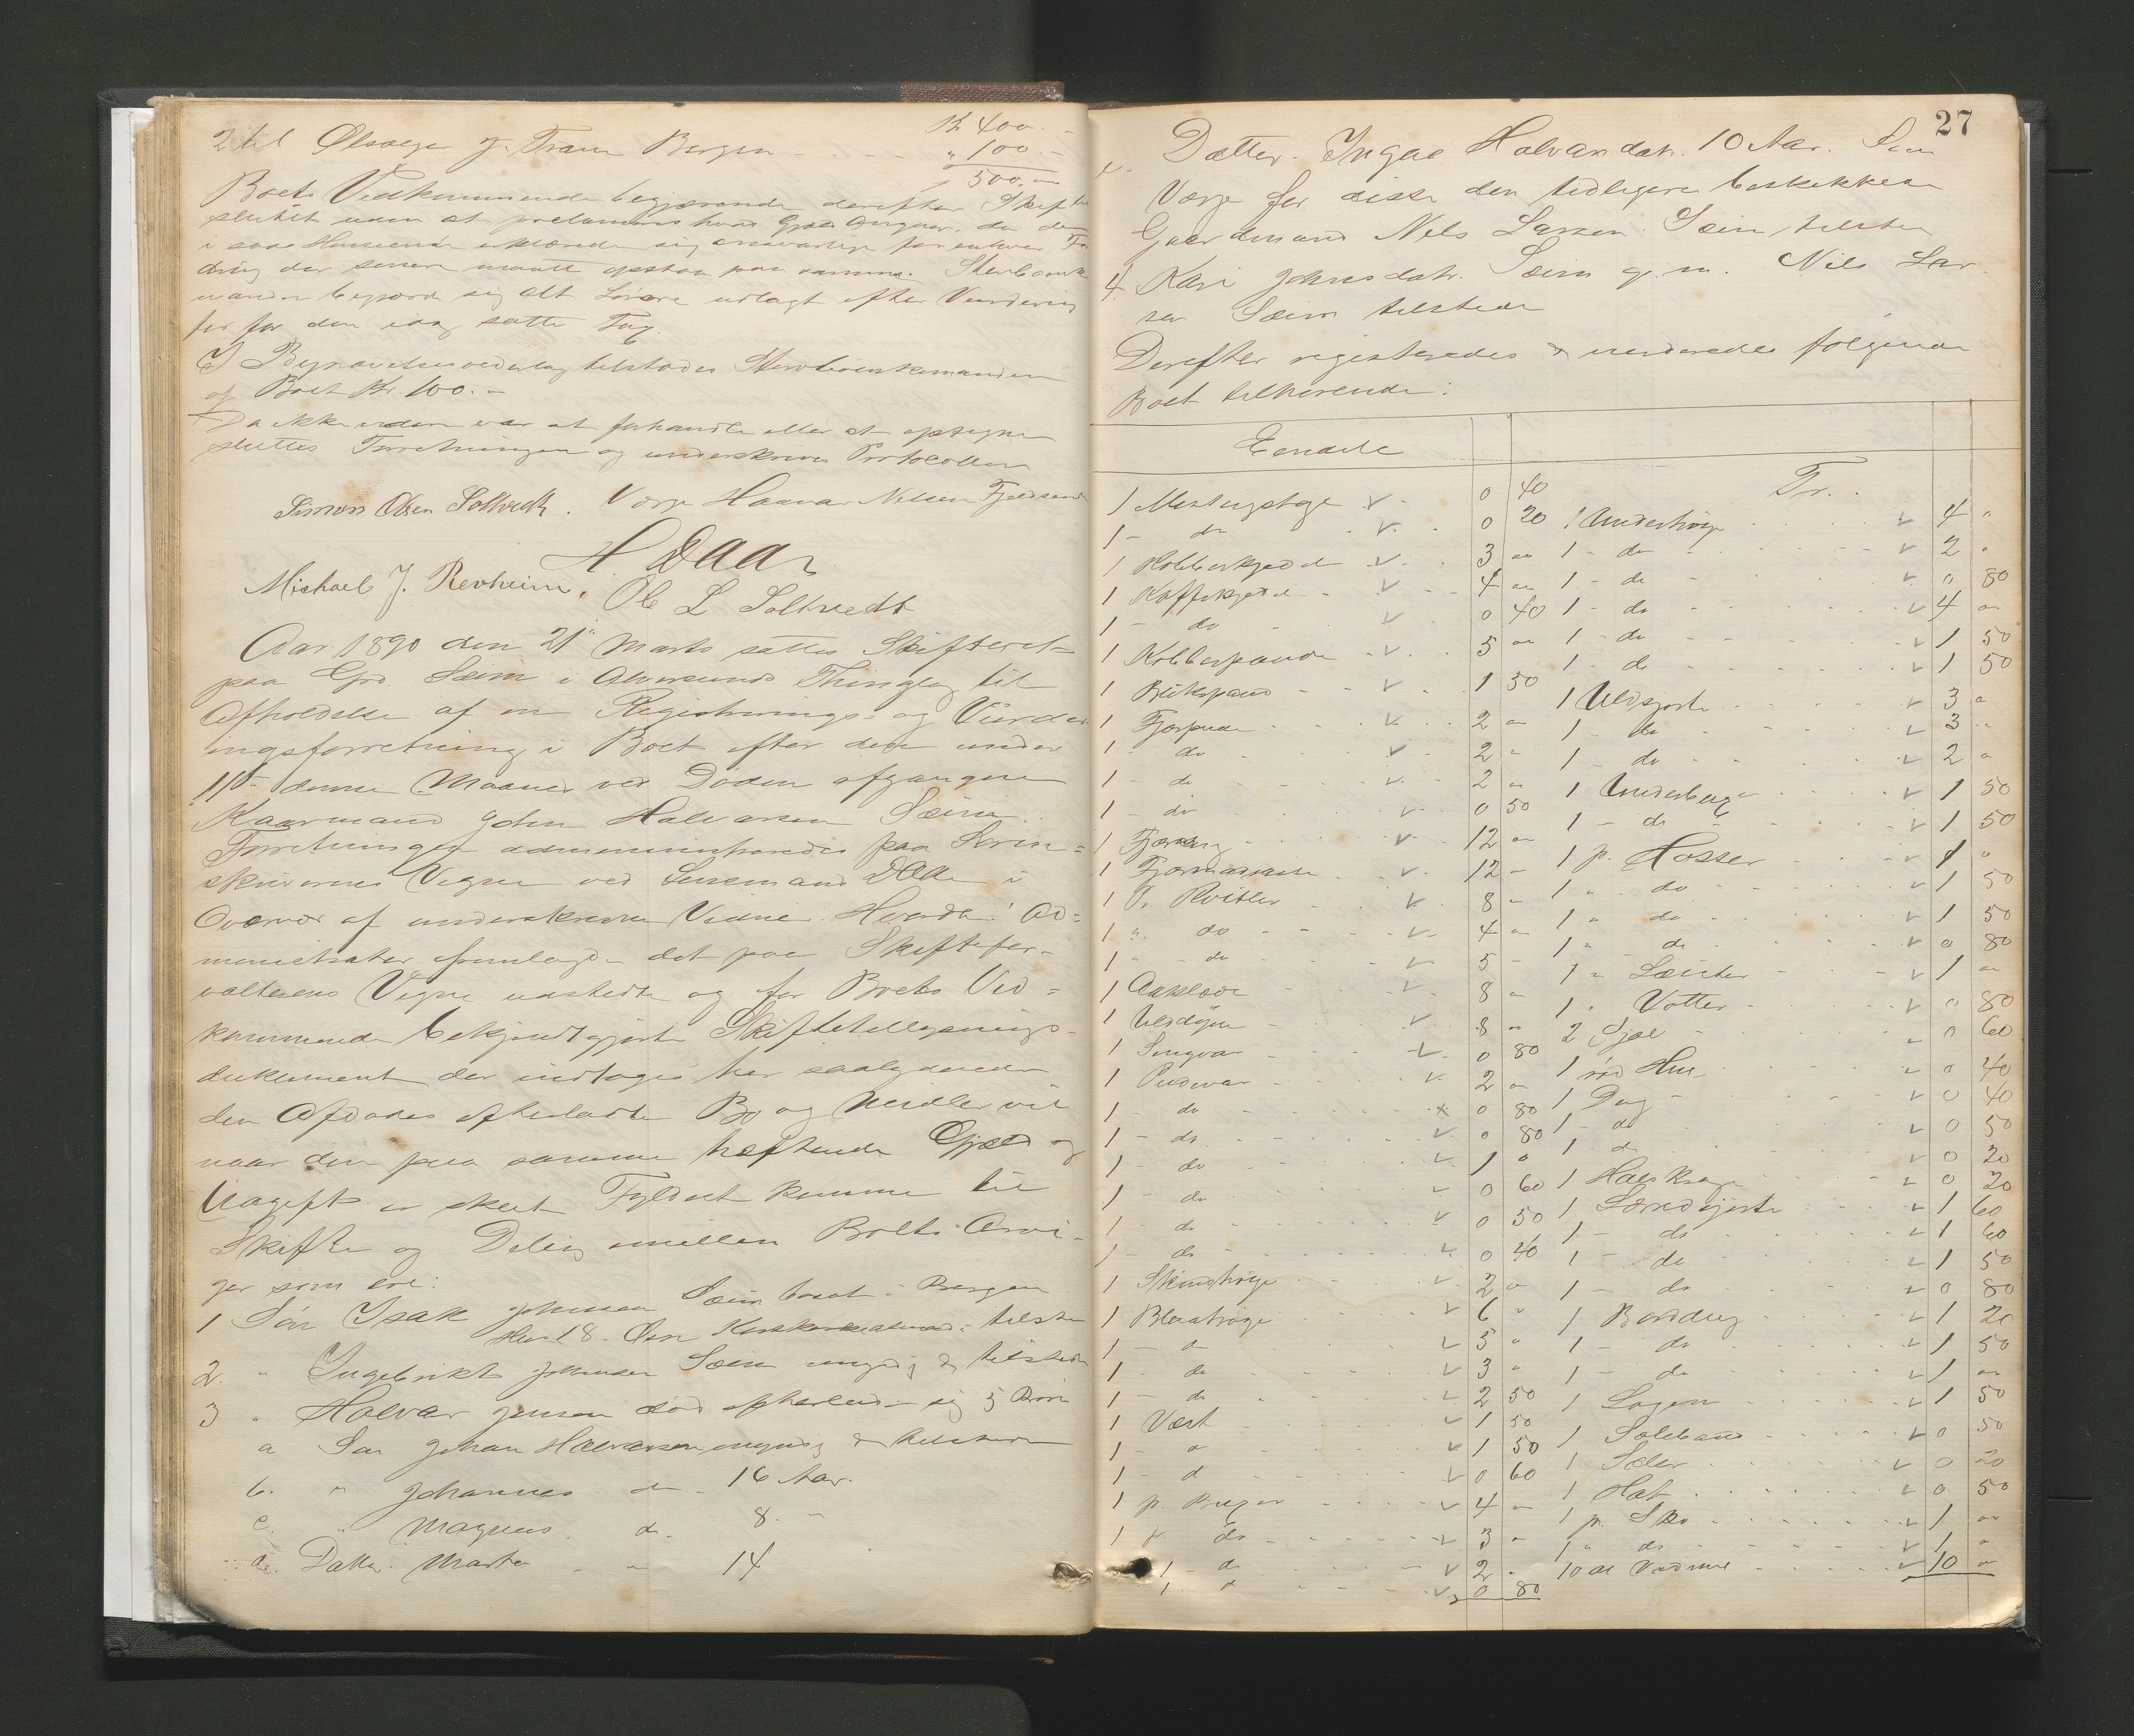 2 til Ølsælger J. Tran Bergen
Kr 400.-
" 100.-
500. "
Boets Vedkommende begjærende derefter Skiftet
sluttet uden at proclameres hverken
i saa Henseende erklærede sig ansvarlige for enhver For
dring der senere maatte opstaa paa samme. Sterboenke
manden begjærede sig alt Løsøre udlagt efter Vurdering
for den idag satte Tax.
I Begravelsesvederlag tilstodes Sterboenkemanden
af Boet Kr. 100.-
Da ikke videre var at forhandle eller at optegne
sluttes Forretningen og underskrives Protocollen
Simon Olsen Soltvedt. Værge Haavar Nilsen Fjeldsend
H Daae
Michael J. Revheim, Ole L Soltvedt
Aar 1890 den 21de Marts sattes Skifteret
paa Grd. Seim i Alversunds Thinglag til
Afholdelse af en Registrerings- og Vurder
ingsforretning i Boet efter den under
11te denne Maaned ved Døden afgangne
Kaarmand John Halvarsen Seim.
Forretningen administreredes paa Soren=
skriverens Vegne ved Lensmand Daae i
Overvær af underskrevne Vidner. Hvorda! Ad=
ministrator fremlagde det paa Skiftefor-
valterens Vegne udstedte og for Boets Ved=
kommende bekjendtgjorte Skiftetillysnings-
dokument der indtages her saalydende
den Afdødes efterladte Bo og Midler vil
naar den paa samme hæftende Gjæld og
Udgift er skeet Fyldest komme til
Skifte og Deling mellem Boets Arvi-
ger som ere:
1 Søn Isak Johnsen Seim bosat i Bergen
Hus 18. tilstede
2. " Ingebrikt Johnsen Seim myndig & tilstede
3 " Halvar Jonsen død efterladende sig 5 Børn
a Søn Johan Halvarsen myndig & tilstede
b. " Johannes do 16 Aar.
c. " Magnus do. 8. "
d. Datter. Marta " 14
27
e. Datter. Inga Halvarsdatr. 10 Aar. Som
Værge for disse den tidligere beskikkede
Gaardmand Nils Larsen Seim tilstede
4. Kari Johnsdatr. Seim g.m. Nils Lar
sen Seim tilstede
Derefter registreredes & vurderedes følgende
Boet tilhørende:
Eiendele
1 Messingstage 0 40
1 - do 0 20
1 Kobberkjedel 3 "
1 Kaffekjedel 4 "
1 - do 0 40
1 Kobberpande 5 "
1 Blikspand 1 50
1 Fjærpude 2 "
1 do 2 "
1 - do 2 "
1 - do 0 50
1 12 "
1 12 "
1 8 "
1 " do 4 "
1 " do 5 "
1 Aaklæde 8 "
1 Ulddyne 8 "
1 0 80
1 Pudevar 2 "
1 - do 0 80
1 - do 0 80
1 - do 1 "
1 - do 0 60
1 - do 0 50
1 - do 0 40
1 Skindtrøge 2 "
1 Blaatrøge 6 "
1 - do 5 "
1 - do 3 "
1 - do 2 50
1 Vest 1 50
1 - do 1 50
1 - do 0 60
1 p. Buxer 4 "
1 p. do 3 "
1 - do 2 "
1 - do 0 80
Tr.
1 Undertrøge 4 "
1 - do 2 "
1 - do 0 80
1 - do 4 "
1 - do 1 50
1 - do 1 50
1 Uldsjorte 3 "
1 - do 3 "
1 - do 2 "
1 Underbuxe 1 50
1 - do 1 50
1 p. Hosser 1 "
1 " do 1 50
1 " do 1 50
1 " do 0 80
1 " Læster 1 "
1 " Votter 0 80
2 Sjæl 0 60
1 rød Hue 0 40
1 Dug 0 40
1 - do 0 50
1 do 0 20
1 Halskrage 0 20
1 Lærredsjorte 1 60
1 - do 1 60
1 - do 1 50
1 - do 0 80
1 Borddug 1 20
1 - do 1 50
1 - do 1 "
1 Lagen 1 50
1 0 50
1 Seler 0 20
1 Hat 0 50
1 p. Sko 1 "
1 " do 1 "
10 al Vadmel 10 "